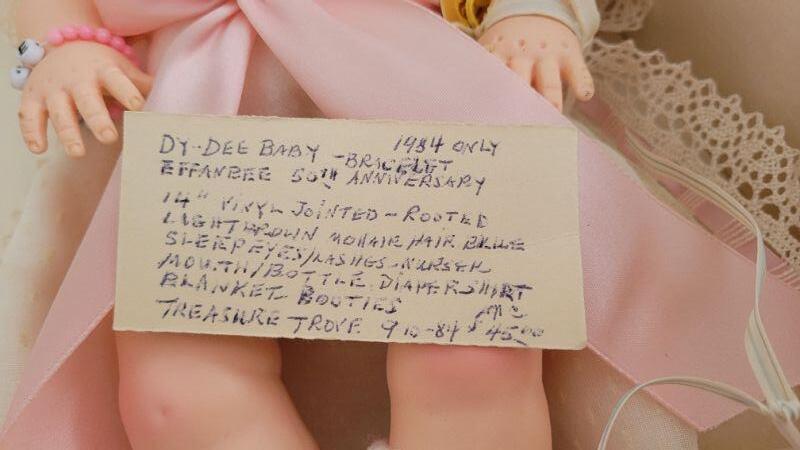 DY-DEE BABY 1984 ONLY
-BRACELET
EFFANBEE 50TH ANNIVERSARY
14" VINYL JOINTED - ROOTED
LIGHTBROWN MOHAIR HAIR BLUE
SLEEPEYES/LASHES-NURSER
MOUTH/BOTTLE DIAPER SHIRT
BLANKET BOOTIES
TREASURE TROVE 9-10-84 $45.00